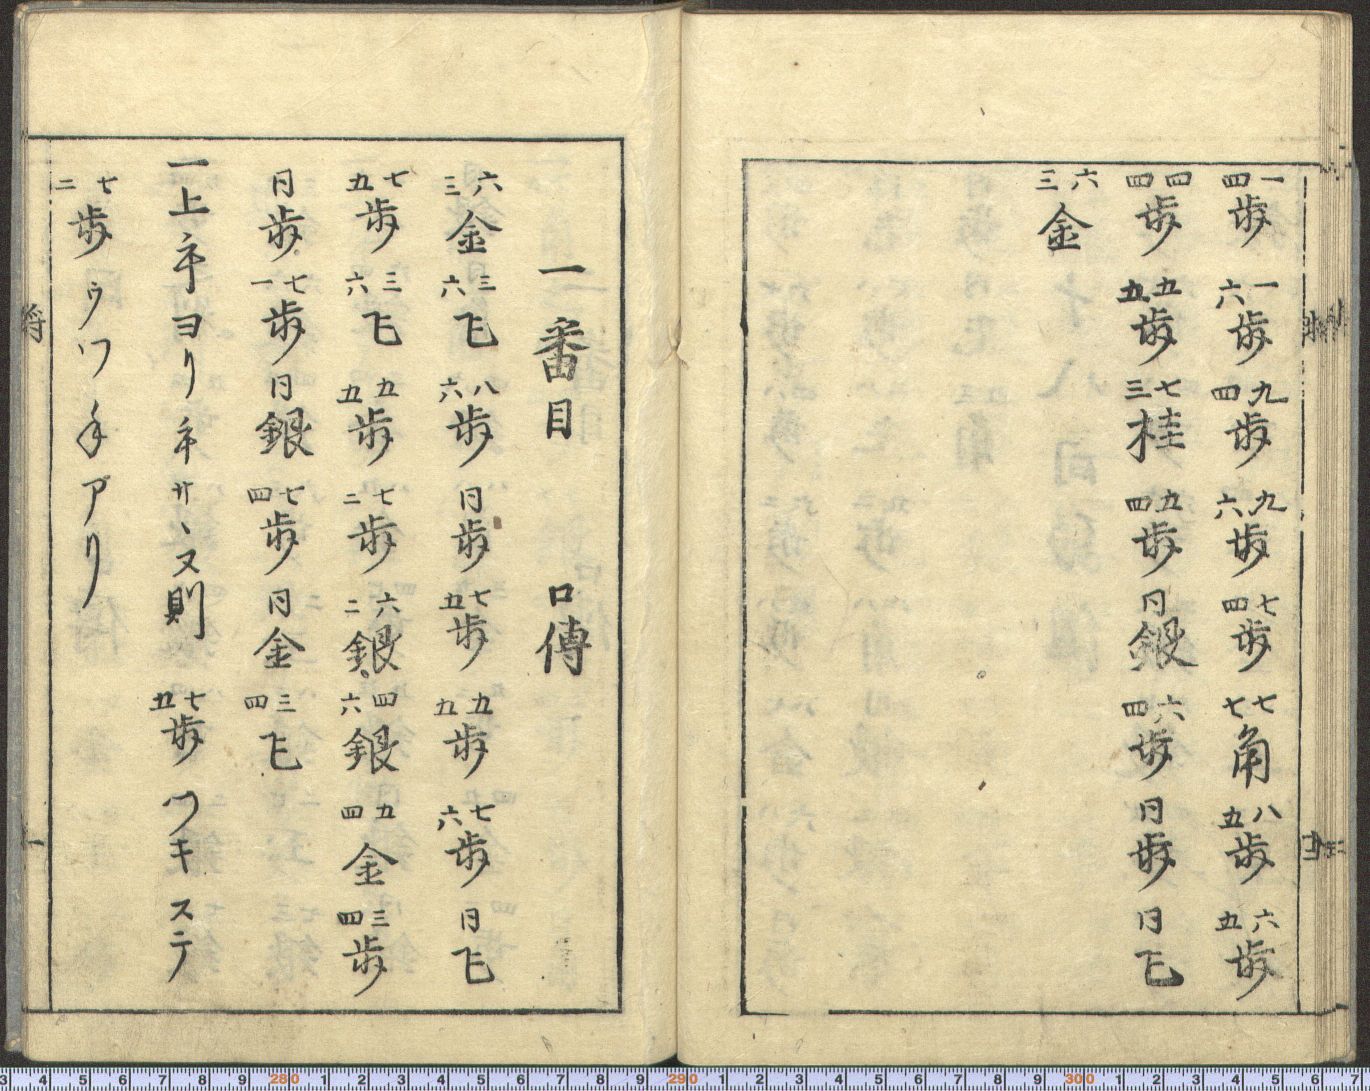 一四歩 一六歩 九四歩 九六歩 七四歩 七七角 八五歩 六五歩
四四歩 五五歩 七三桂 五四歩 同銀 六四歩 同歩 同飛
六三金
一番目 口傳
六三金 三六飛 八六歩 同歩 七五歩 五五歩 七六歩 同飛
七五歩 三六飛 五五歩 七二歩 六二銀 四六銀 五四金 三四歩
同歩 七一歩 同銀 七四歩 同金 三四飛
一上手ヨリ手サヽヌ則 七五歩 ツキステ
七二歩 ウツ手アリ